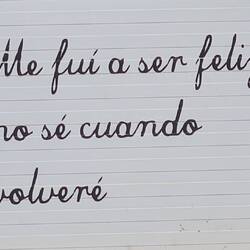 Me fuí a ser feliz
no sé cuando
volveré